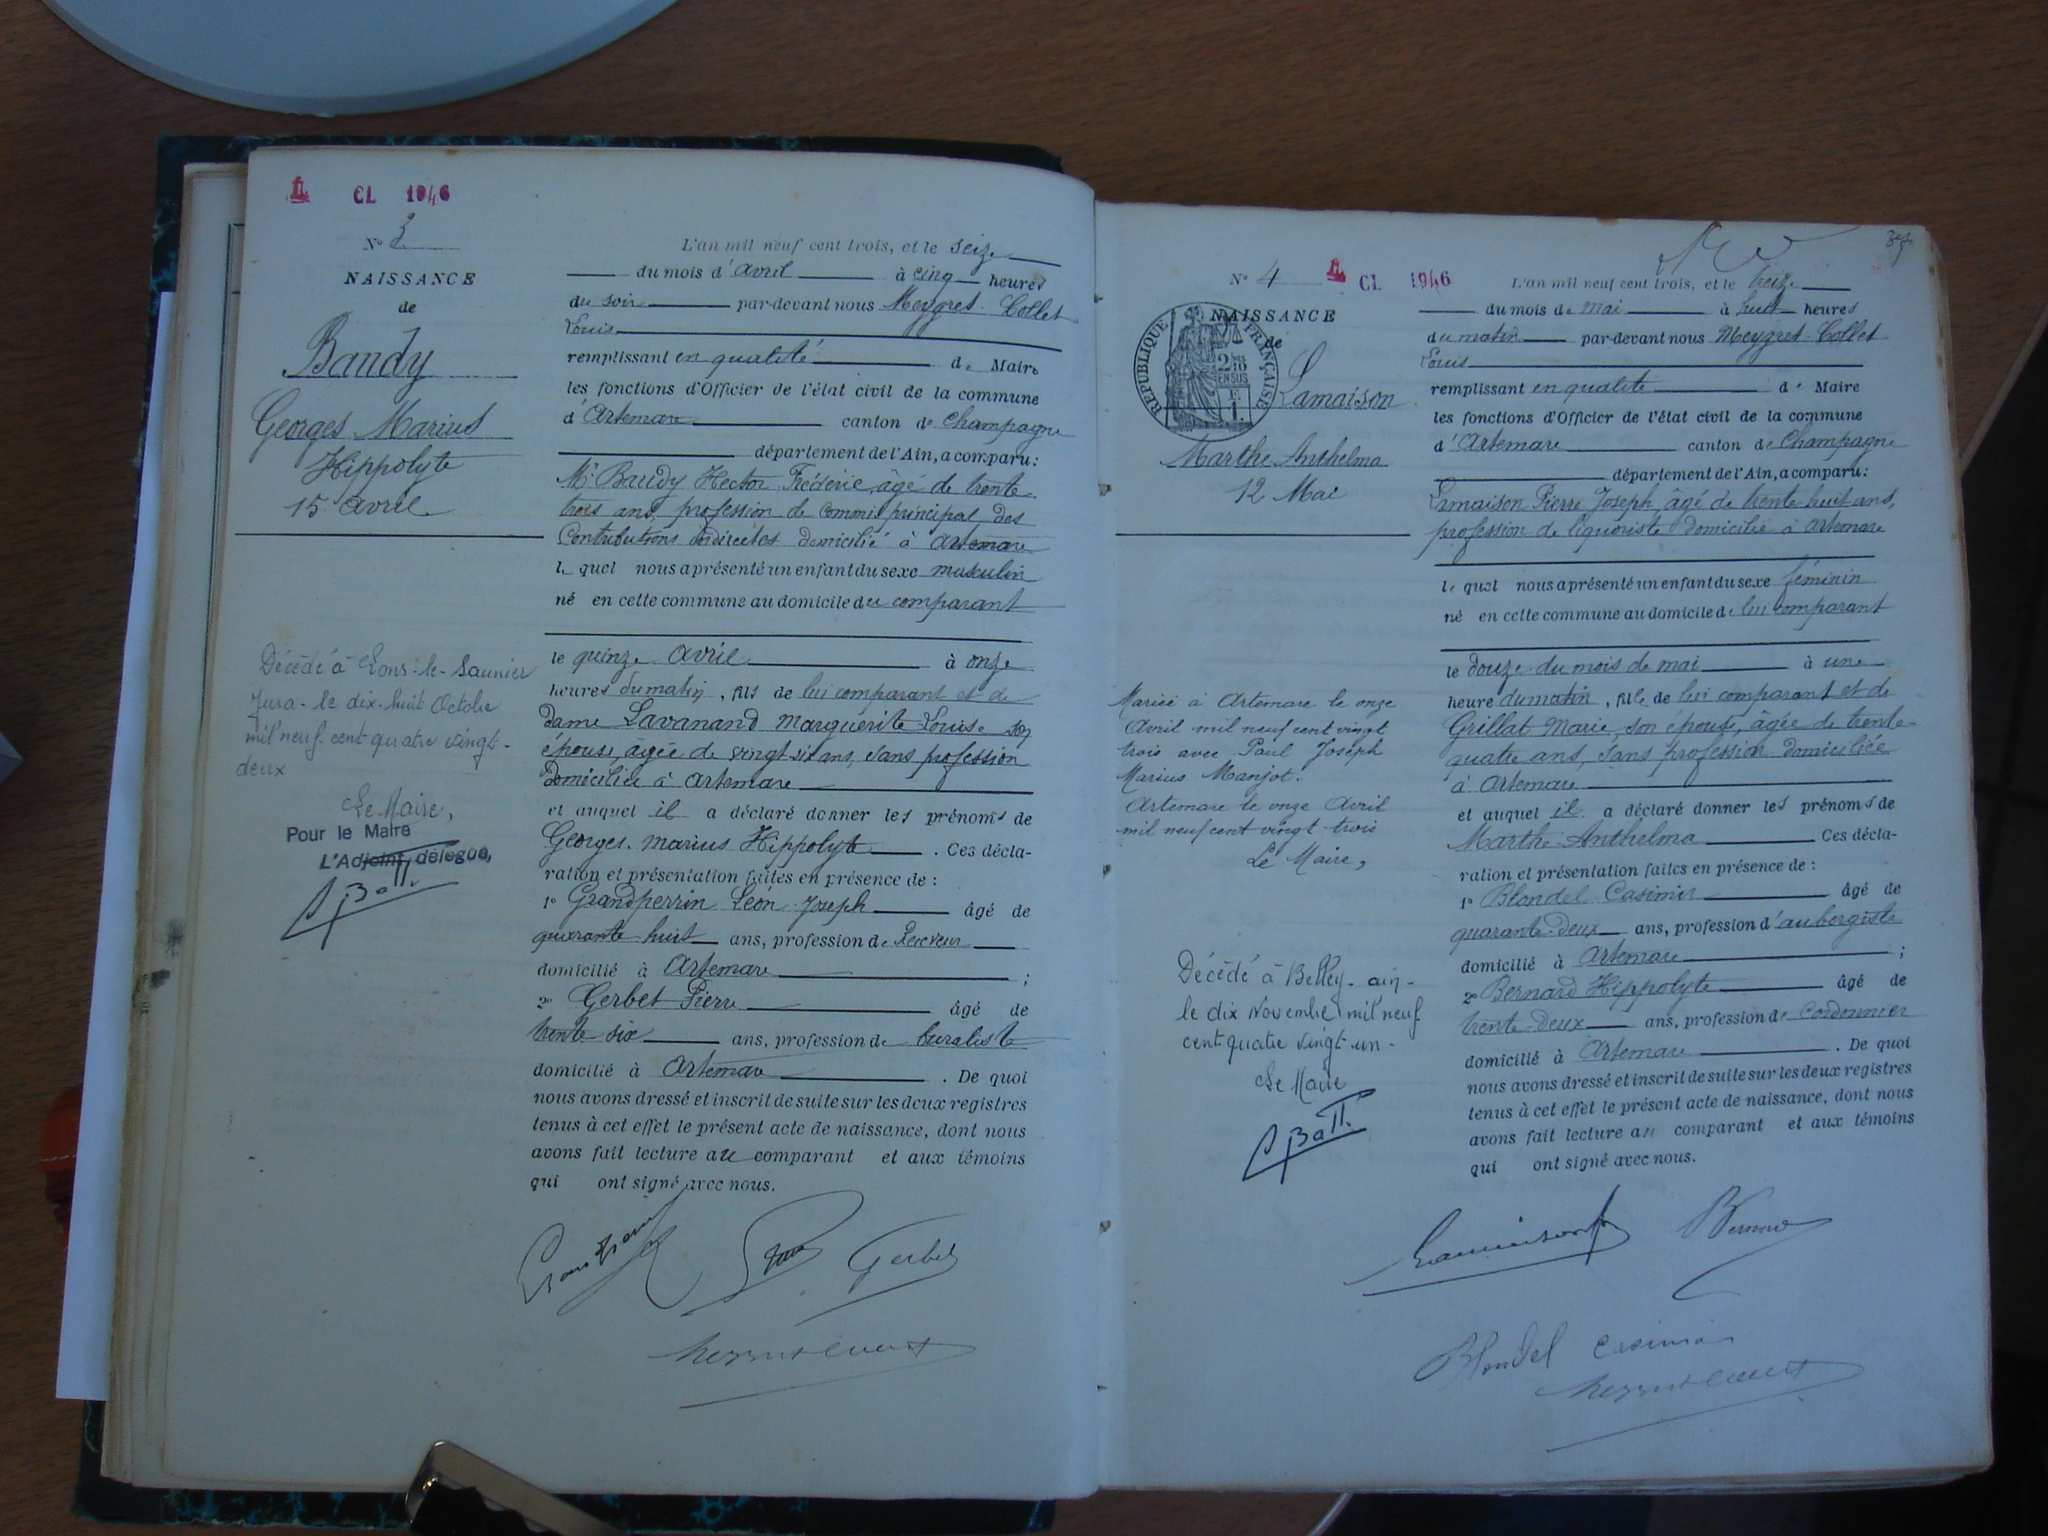 CL 1946
N° 3
NAISSANCE
de
Baudy
Georges Marius
Hippolyte
15 avril
Décédé à Lons-le-Saunier
Jura - le dix-huit Octobre
mil neuf cent quatre vingt-
deux
Le Maire,
Pour le Maire
L'Adjoint délégué,
L'an mil neuf cent trois, et le seize
du mois d'avril à cinq heures
du soir par-devant nous Meygret-Collet
Louis
remplissant en qualité de Maire
les fonctions d'Officier de l'état civil de la commune
d'Artemare canton de Champagne
département de l'Ain, a comparu :
Mr Baudy Hector Frédéric, âgé de trente-
trois ans, profession de commis principal des
Contributions indirectes domicilié à Artemare
lequel nous a présenté un enfant du sexe masculin
né en cette commune au domicile du comparant
le quinze avril à onze
heures du matin, fils de lui comparant et de
dame Lavanand Marguerite-Louise son
épouse, âgée de vingt six ans, sans profession
domiciliée à Artemare
et auquel il a déclaré donner les prénoms de
Georges. Marius Hippolyte . Ces décla-
ration et présentation faites en présence de :
1° Grandperrin Léon Joseph âgé de
quarante huit ans, profession de Receveur
domicilié à Artemare ;
2° Gerbet Pierre âgé de
trente six ans, profession de buraliste
domicilié à Artemare . De quoi
nous avons dressé et inscrit de suite sur les deux registres
tenus à cet effet le présent acte de naissance, dont nous
avons fait lecture au comparant et aux témoins
qui ont signé avec nous.
Gerbet
N° 4 CL 1946
NAISSANCE
de
RÉPUBLIQUE FRANÇAISE
Lamaison
Marthe Anthelma
12 Mai
Mariée à Artemare le onze
Avril mil neuf cent vingt
trois avec Paul Joseph
Marius Manjot.
Artemare le onze Avril
mil neuf cent vingt-trois
Le Maire,
Décédé à Belley - ain -
le dix Novembre mil neuf
cent quatre vingt-un -
Le Maire
L'an mil neuf cent trois, et le treize
du mois de mai à huit heures
du matin par-devant nous Meygret-Collet
Louis
remplissant en qualité de Maire
les fonctions d'Officier de l'état civil de la commune
d'Artemare canton de Champagne
département de l'Ain, a comparu :
Lamaison Pierre Joseph, âgé de trente huit ans,
profession de liquoriste domicilié à Artemare
lequel nous a présenté un enfant du sexe féminin
né en cette commune au domicile de lui comparant
le douze du mois de mai à une
heure du matin, fille de lui comparant et de
Grillat Marie, son épouse, âgée de trente-
quatre ans, sans profession domiciliée
à Artemare
et auquel il a déclaré donner les prénoms de
Marthe Anthelma Ces décla-
ration et présentation faites en présence de :
1° Blondel Casimir âgé de
quarante-deux ans, profession d'aubergiste
domicilié à Artemare ;
2° Bernard Hippolyte âgé de
trente-deux ans, profession de Cordonnier
domicilié à Artemare . De quoi
nous avons dressé et inscrit de suite sur les deux registres
tenus à cet effet le présent acte de naissance, dont nous
avons fait lecture au comparant et aux témoins
qui ont signé avec nous.
Lamaison Bernard
Blondel Casimir